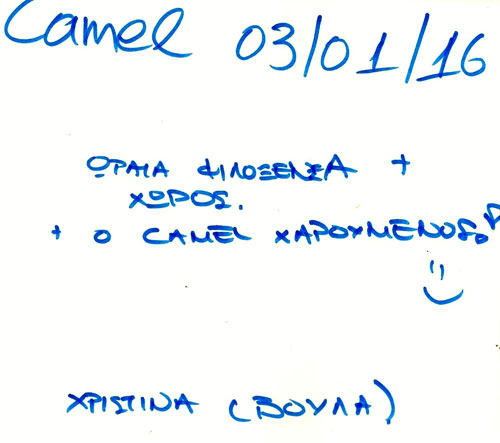 Camel 03/01/16
ΩΡΑΙΑ ΦΙΛΟΞΕΝΙΑ +
ΧΩΡΟΣ.
+ Ο CAMEL ΧΑΡΟΥΜΕΝΟΣ
ΧΡΙΣΤΙΝΑ (ΒΟΥΛΑ)